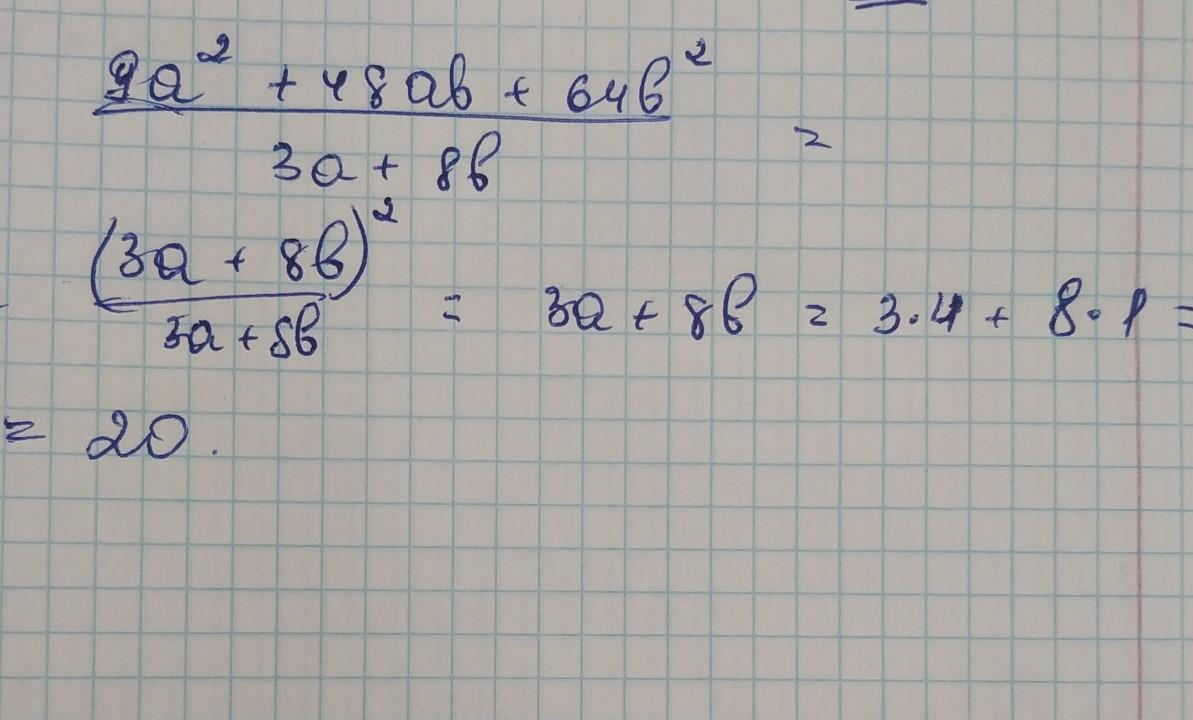 9a² + 48aв + 64в²
3a + 8в
=
(3a + 8в)²
3a + 8в
= 3a + 8в = 3·4 + 8·1 =
= 20.